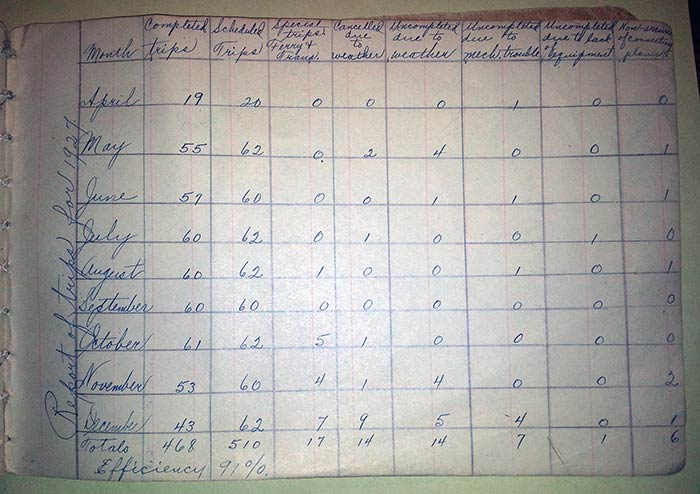 Report of trips for 1927
Month Completed trips Scheduled Trips Special trips Ferry & Trans. Cancelled due to weather Uncompleted due to weather Uncompleted due to mech. trouble Uncompleted due to lack equipment Non-arrival of connecting planes
April 19 20 0 0 0 1 0 0
May 55 62 0 2 4 0 0 1
June 57 60 0 0 1 1 0 1
July 60 62 0 1 0 0 1 0
August 60 62 1 0 0 1 0 1
September 60 60 0 0 0 0 0 0
October 61 62 5 1 0 0 0 0
November 53 60 4 1 4 0 0 2
December 43 62 7 9 5 4 0 1
Totals 468 510 17 14 14 7 1 6
Efficiency 91%.